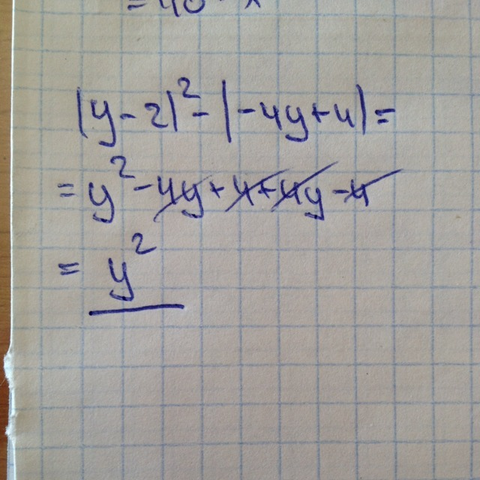 (y-2)²-(-4y+4)=
=y²-4y+4+4y-4
=y²